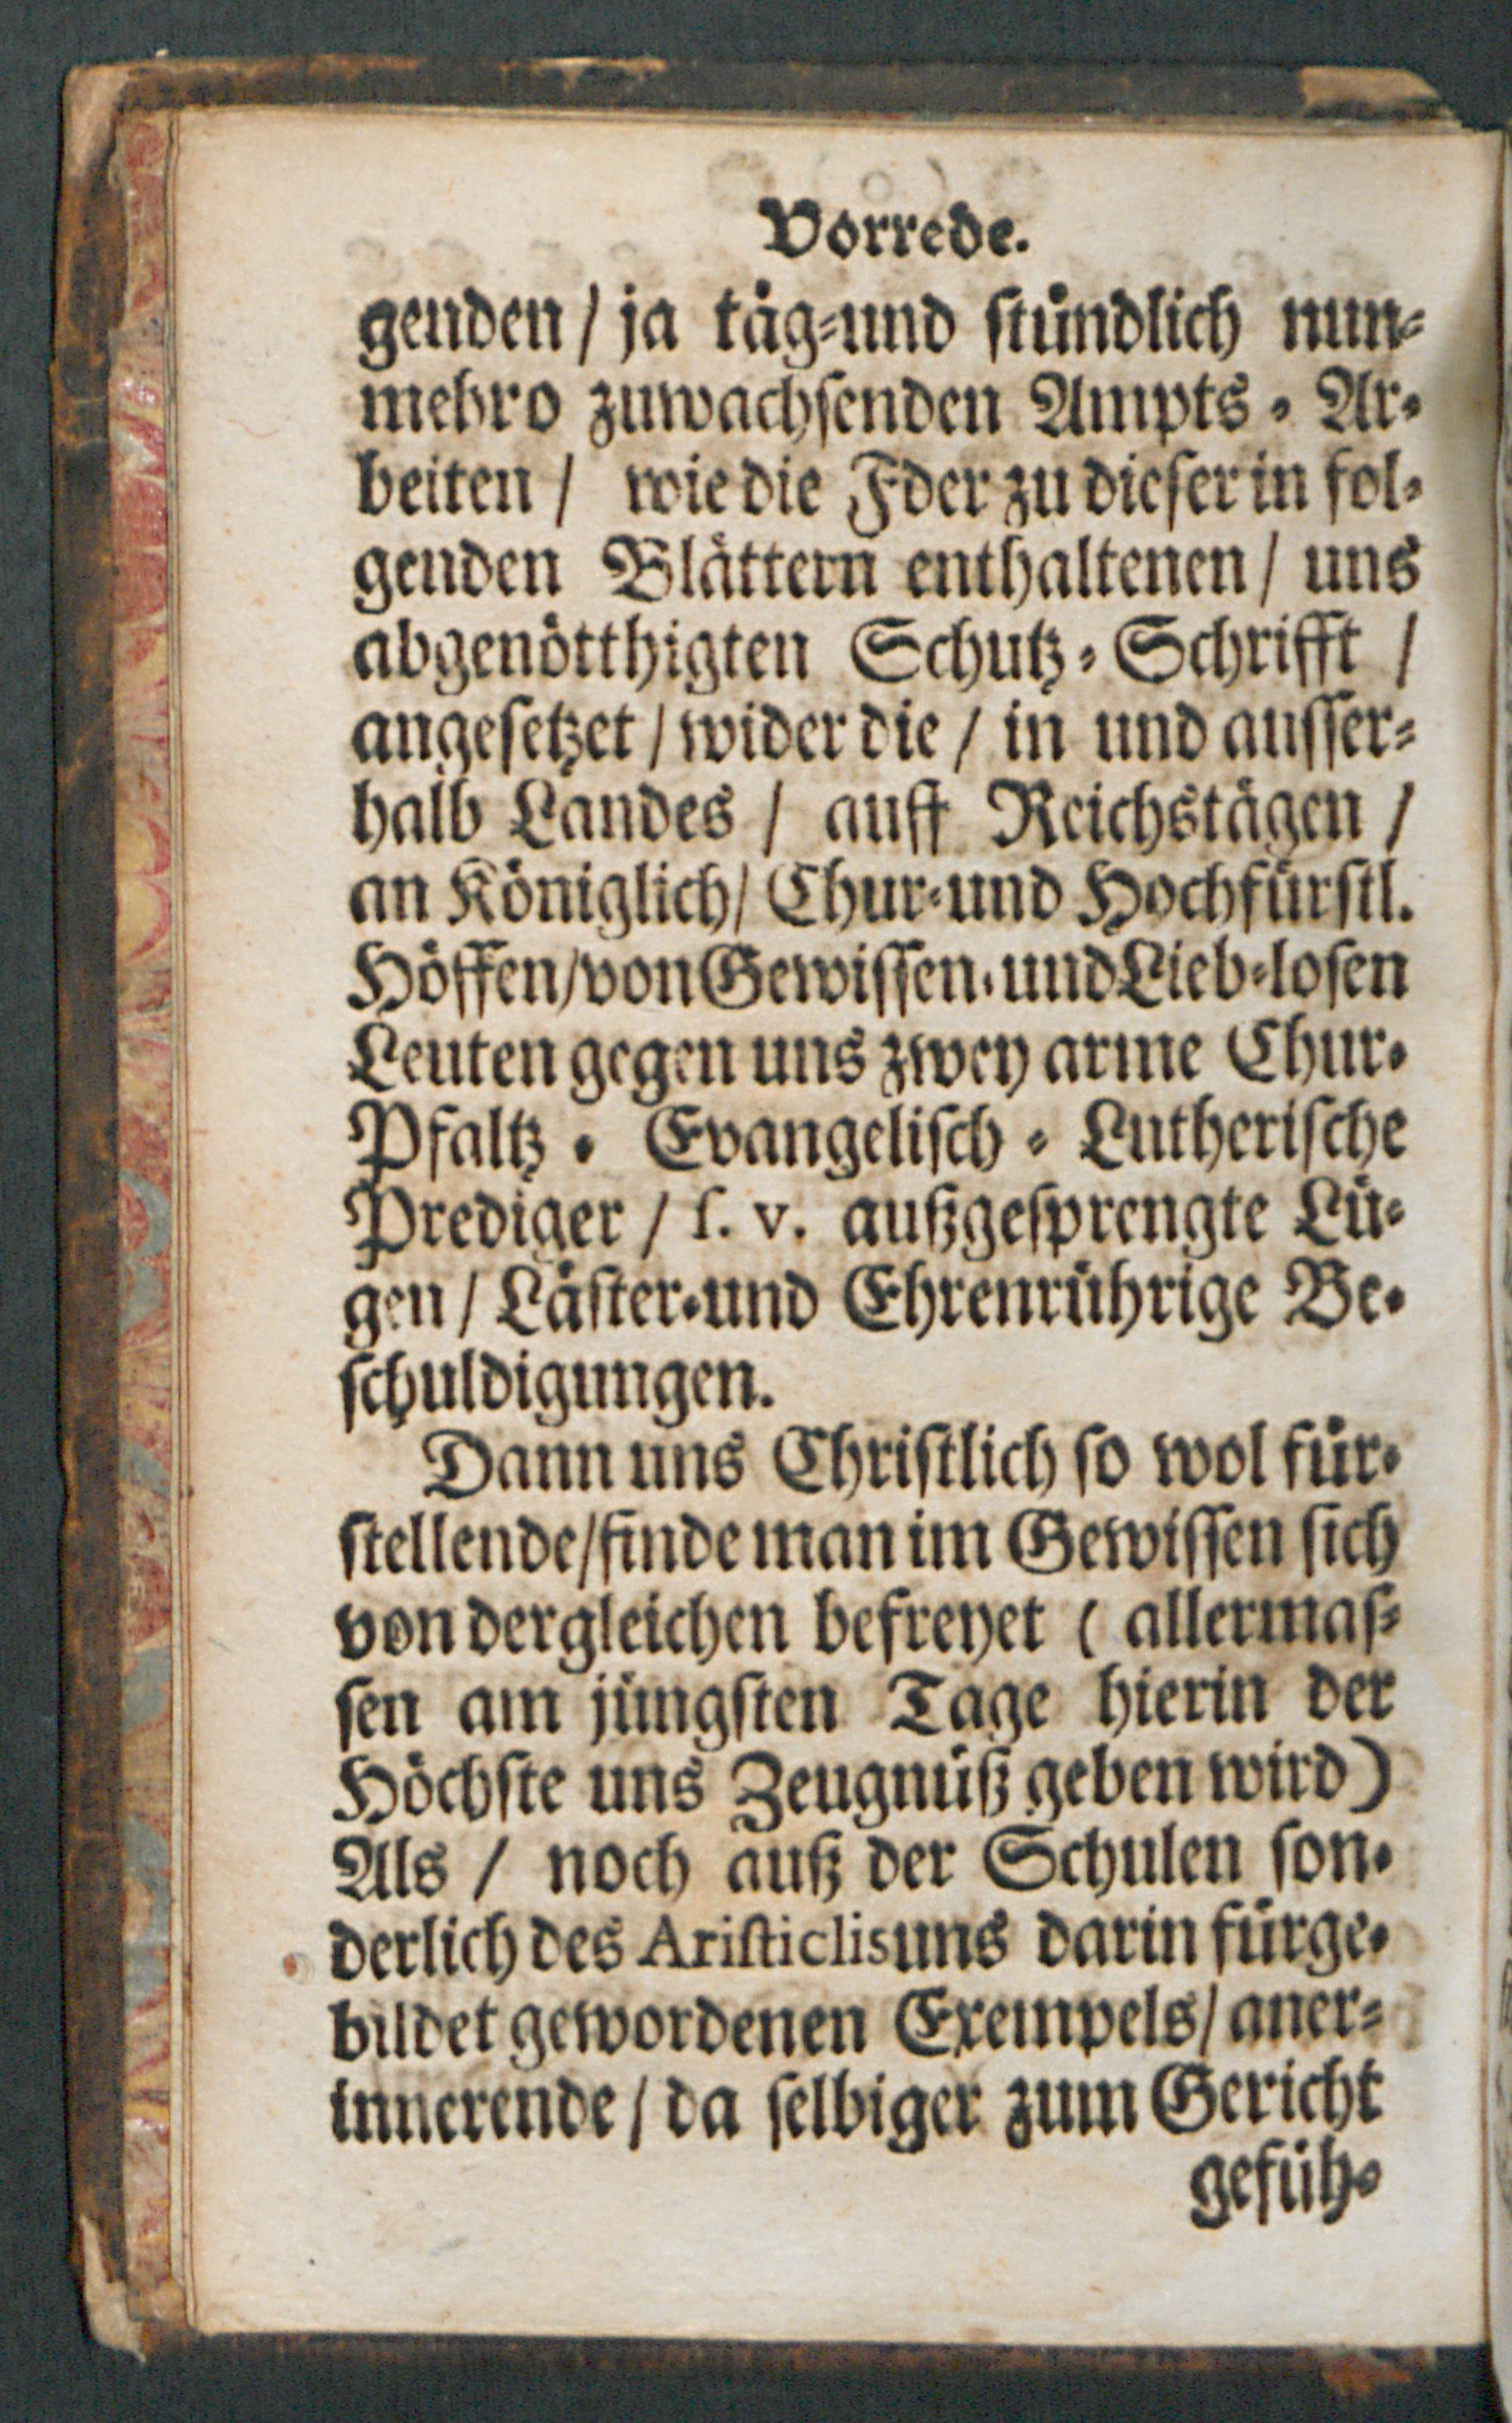 Vorrede.
genden / ja täg-und ſtündlich nun-
mehro zuwachſenden Ampts-Ar-
beiten / wie die Fder zu dieſer in fol-
genden Blättern enthaltenen / uns
abgenötthigten Schutz-Schrifft /
angeſetzet / wider die / in und auſſer-
halb Landes / auff Reichstägen /
an Königlich / Chur-und Hochfürſtl.
Höffen / von Gewiſſen-und Lieb-loſen
Leuten gegen uns zwey arme Chur-
Pfaltz-Evangeliſch-Lutheriſche
Prediger / ſ. v. außgeſprengte Lü-
gen / Läſter-und Ehrenrührige Be-
ſchuldigungen.
Dann uns Chriſtlich ſo wol für-
ſtellende / finde man im Gewiſſen ſich
von dergleichen befreyet ( allermaſ-
ſen am jüngſten Tage hierin der
Höchſte uns Zeugnüß geben wird)
Als / noch auß der Schulen ſon-
derlich des Ariſticlis uns darin fürge-
bildet gewordenen Exempels / aner-
innerende / da ſelbiger zum Gericht
gefüh-